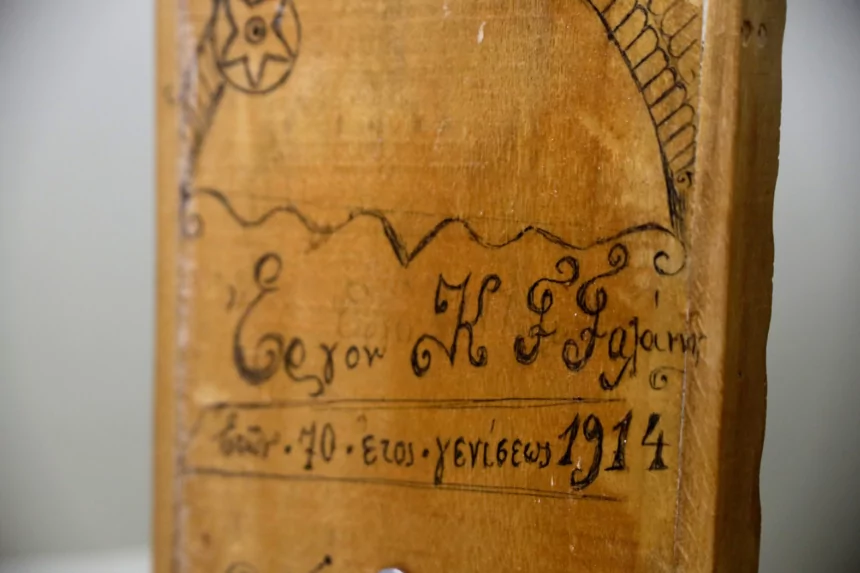 Ἔργον Κ Γ Γαλάνης
Ἐτῶν · 70 · ἔτος · γενίσεως 1914